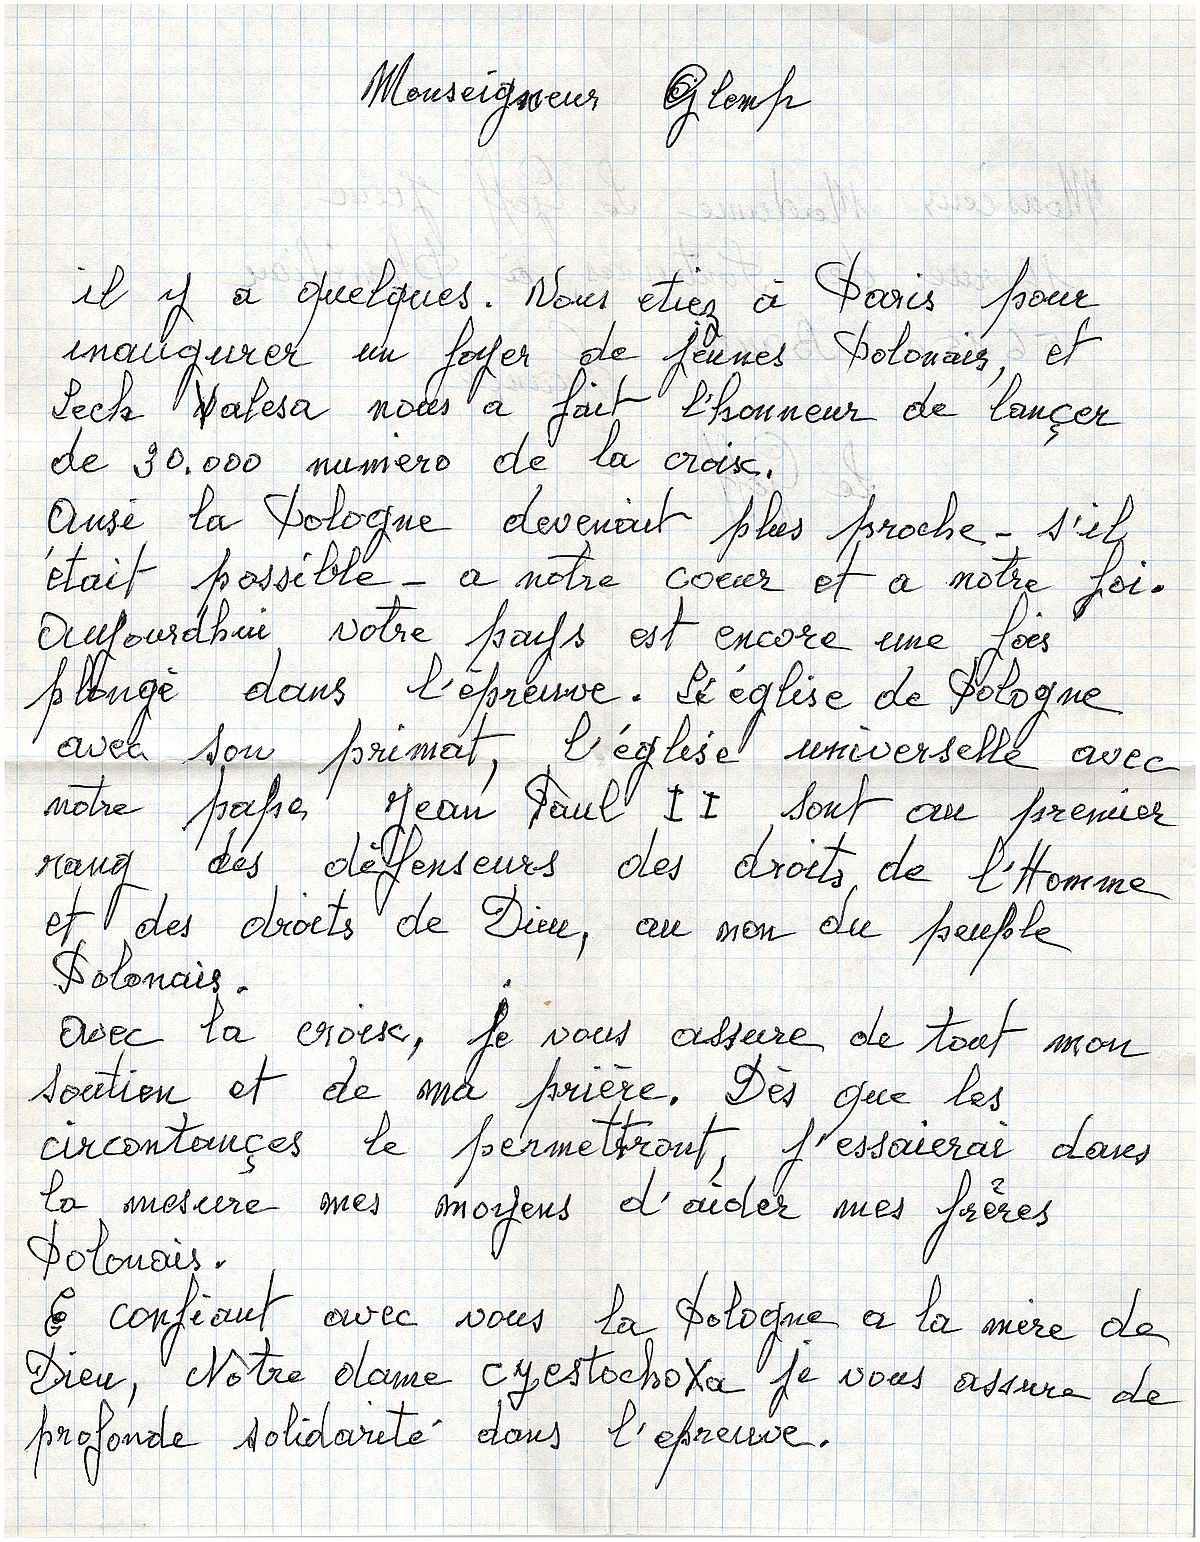 Monseigneur Glemp
il y a quelques. Nous etiez à Paris pour
inaugurer un foyer de jeunes Polonais, et
Lech Valesa nous a fait l'honneur de lançer
de 30.000 numéro de la croix.
Ausi la Pologne devenait plus proche - s'il
était possible - a notre coeur et a notre foi.
Aujourdhui votre pays est encore une fois
plongé dans l'épreuve. L'église de Pologne
avec son primat, l'église universelle avec
notre pape Jean Paul II sont au premier
rang des défenseurs des droits de l'Homme
et des droits de Dieu, au non du peuple
Polonais.
avec la croix, je vous assure de tout mon
soutien et de ma prière. Dès que les
circontançes le permettront, j'essaierai dans
la mesure mes moyens d'aider mes frêres
Polonais.
E confiant avec vous la Pologne a la mère de
Dieu, Nôtre dame czestochoXa je vous assure de
profonde solidarité dans l'epreuve.